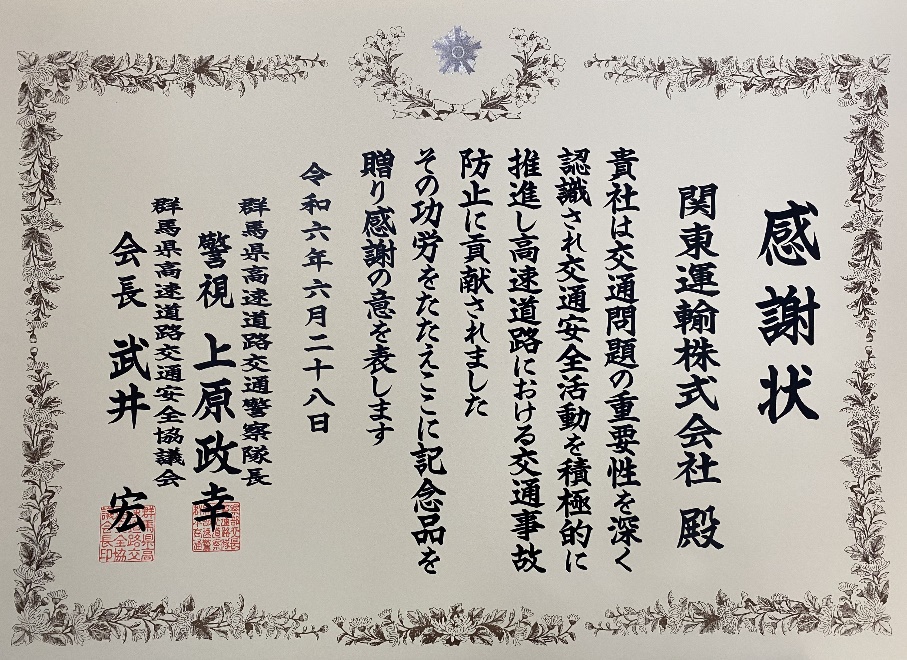 感謝状
関東運輸株式会社 殿
貴社は交通問題の重要性を深く
認識され交通安全活動を積極的に
推進し高速道路における交通事故
防止に貢献されました
その功労をたたえここに記念品を
贈り感謝の意を表します
令和六年六月二十八日
群馬県高速道路交通警察隊長
警視 上原政幸
群馬県高速道路交通安全協議会
会長 武井 宏